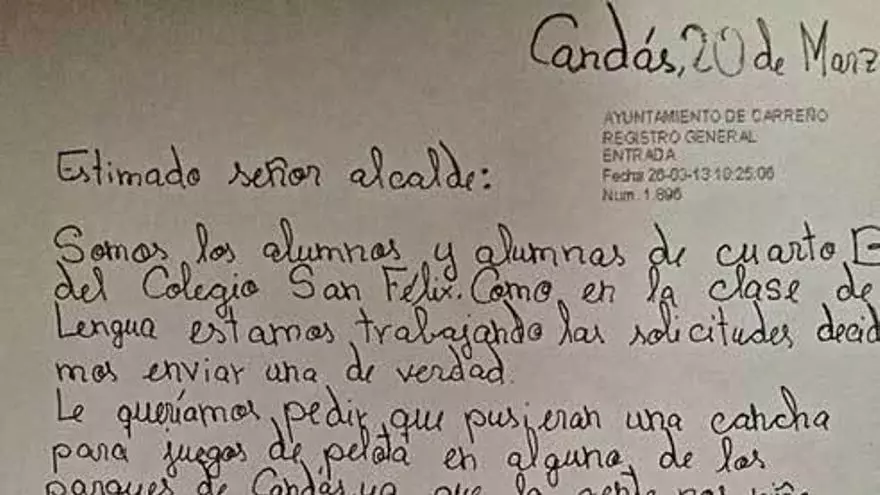 Candás, 20 de Marz
AYUNTAMIENTO DE CARREÑO
REGISTRO GENERAL
ENTRADA
Fecha 26-03-13 10:25:06
Num. 1.896
Estimado señor alcalde:
Somos los alumnos y alumnas de cuarto
del Colegio San Félix. Como en la clase de
Lengua estamos trabajando las solicitudes decid
mos enviar una de verdad.
Le queríamos pedir que pusieran una cancha
para juegos de pelota en alguno de los
parques de Candás, ya que la gente nos